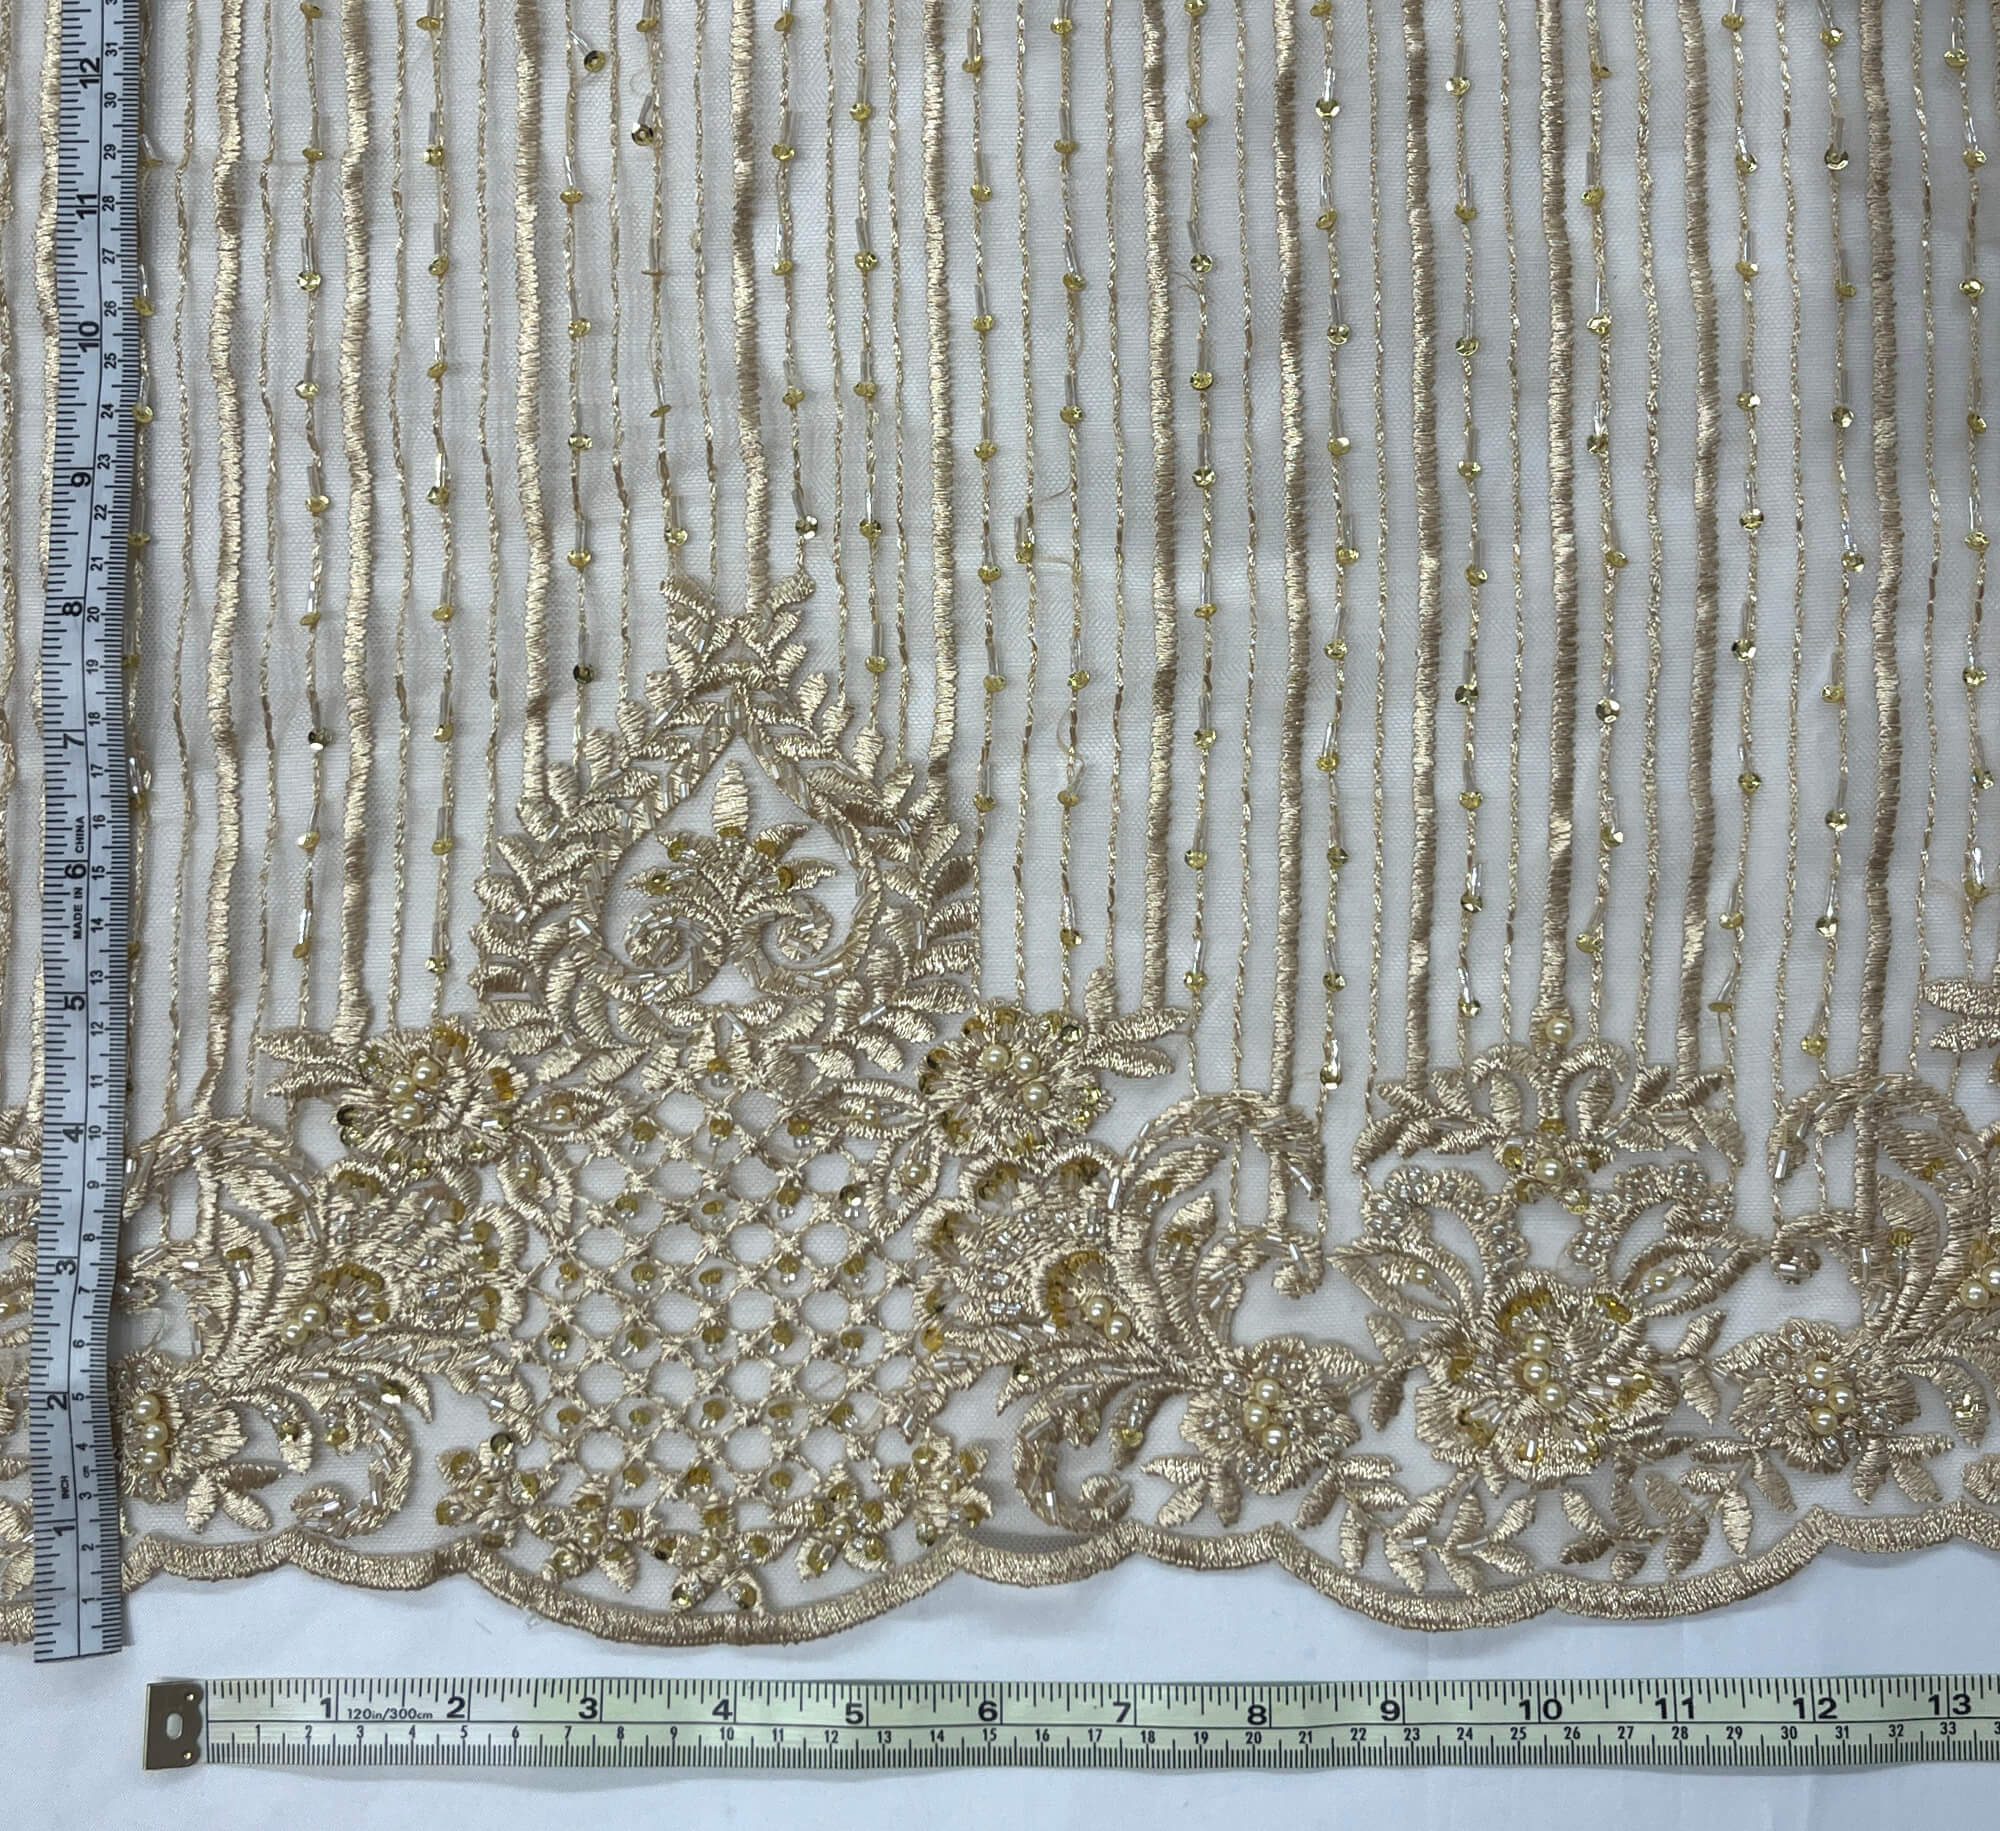 12 31
30
29
11 28
27
26
10 25
24
23
9 22
21
8 20
19
18
7 17
16
MADE IN CHINA
6 15
14
13
5 12
11
4 10
9
8
3 7
6
2 5
4
INCH cm 3
1 2
1
1 120in/300cm 2 3 4 5 6 7 8 9 10 11 12 13
1 2 3 4 5 6 7 8 9 10 11 12 13 14 15 16 17 18 19 20 21 22 23 24 25 26 27 28 29 30 31 32 33